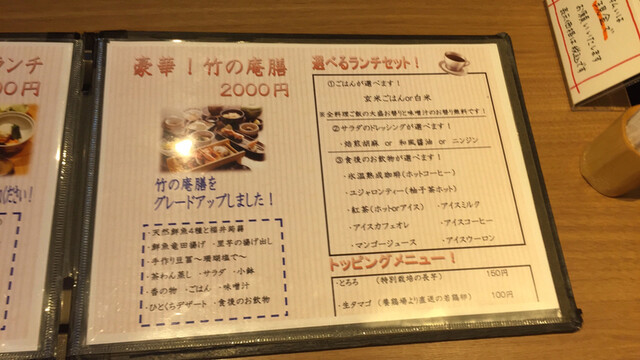 ランチ
00円
ください!
豪華!竹の庵膳
2000円
竹の庵膳を
グレードアップしました!
・天然鮮魚4種と福井蒟蒻
・鮮魚竜田揚げ ・里芋の揚げ出し
・手作り豆冨~珊瑚塩で~
・茶わん蒸し ・サラダ ・小鉢
・香の物 ・ごはん ・味噌汁
・ひとくちデザート ・食後のお飲物
選べるランチセット!
①ごはんが選べます!
玄米ごはんor白米
※全料理ご飯の大盛お替りと味噌汁のお替り無料です!
②サラダのドレッシングが選べます!
・焙煎胡麻 or 和風醤油 or ニンジン
③食後のお飲物が選べます!
・氷温熟成珈琲(ホットコーヒー)
・ユジャロンティー(柚子茶ホット)
・紅茶(ホットorアイス) ・アイスミルク
・アイスカフェオレ ・アイスコーヒー
・マンゴージュース ・アイスウーロン
トッピングメニュー!
・とろろ (特別栽培の長芋) 150円
・生タマゴ (養鶏場より直送の若鶏卵) 100円
お願いいたします
表示価格は税込です